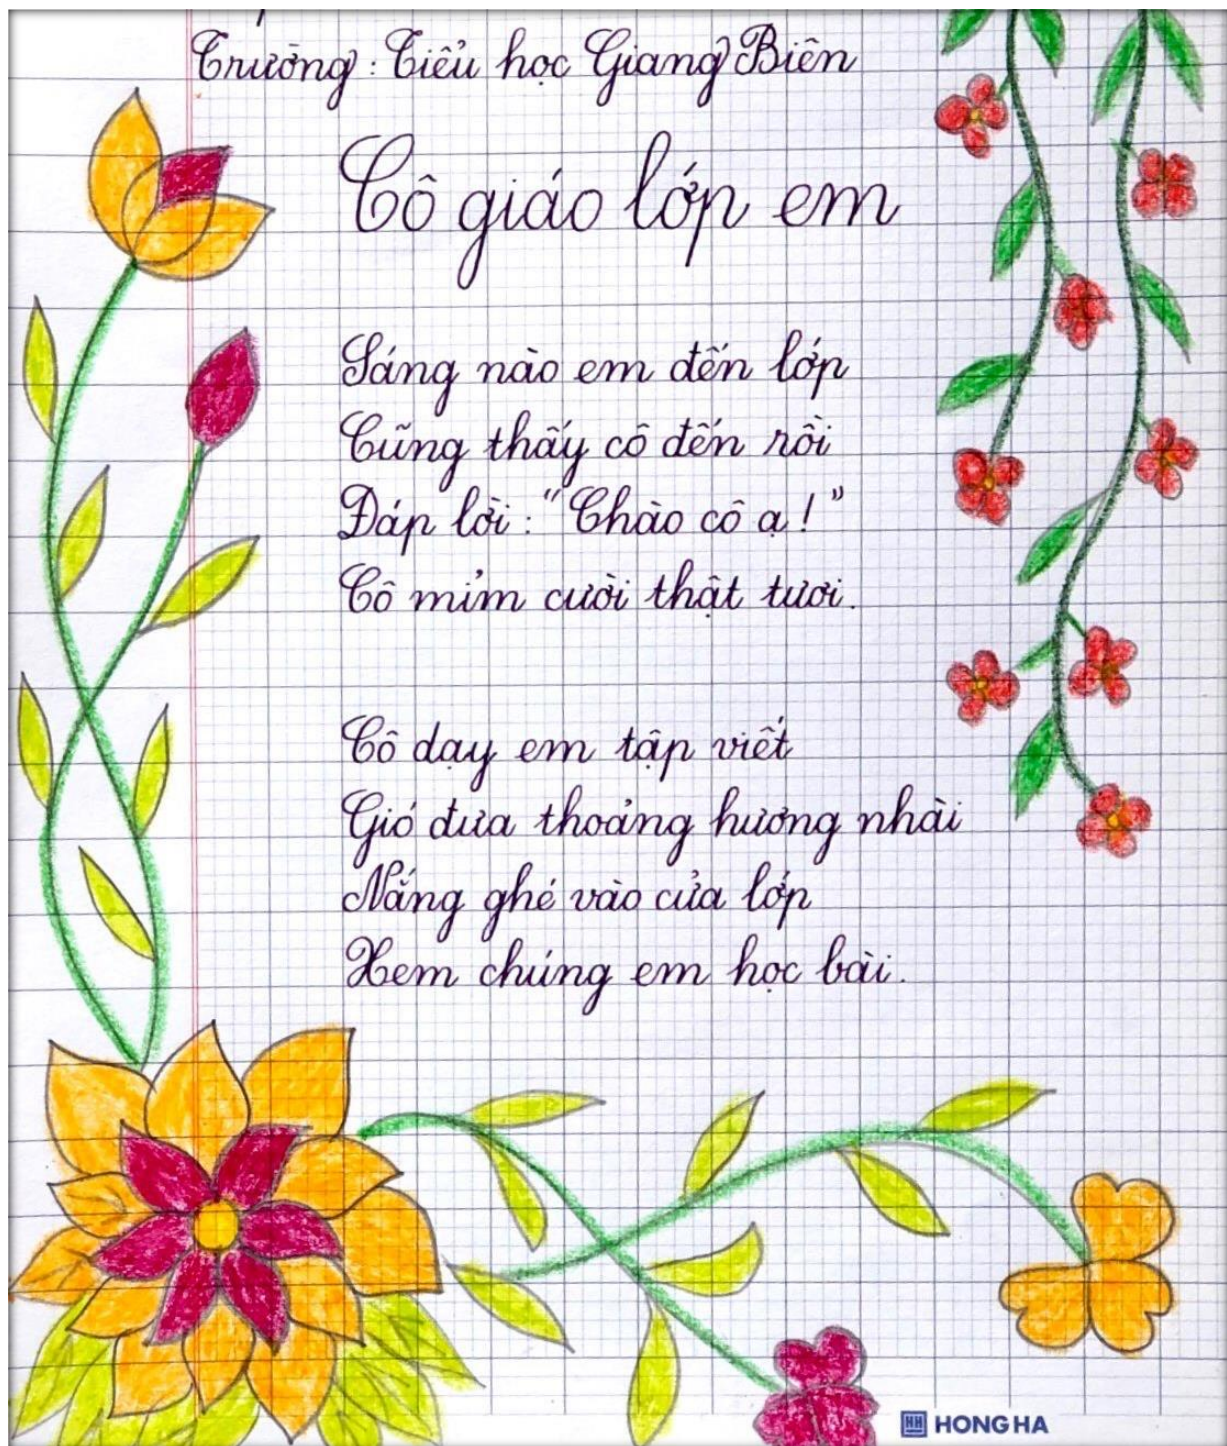 Trường: Tiểu học Giang Biên
Cô giáo lớp em
Sáng nào em đến lớp
Cũng thấy cô đến rồi
Đáp lời: "Chào cô ạ!"
Cô mỉm cười thật tươi.
Cô dạy em tập viết
Gió đưa thoảng hương nhài
Nắng ghé vào cửa lớp
Xem chúng em học bài.
HH HONG HA